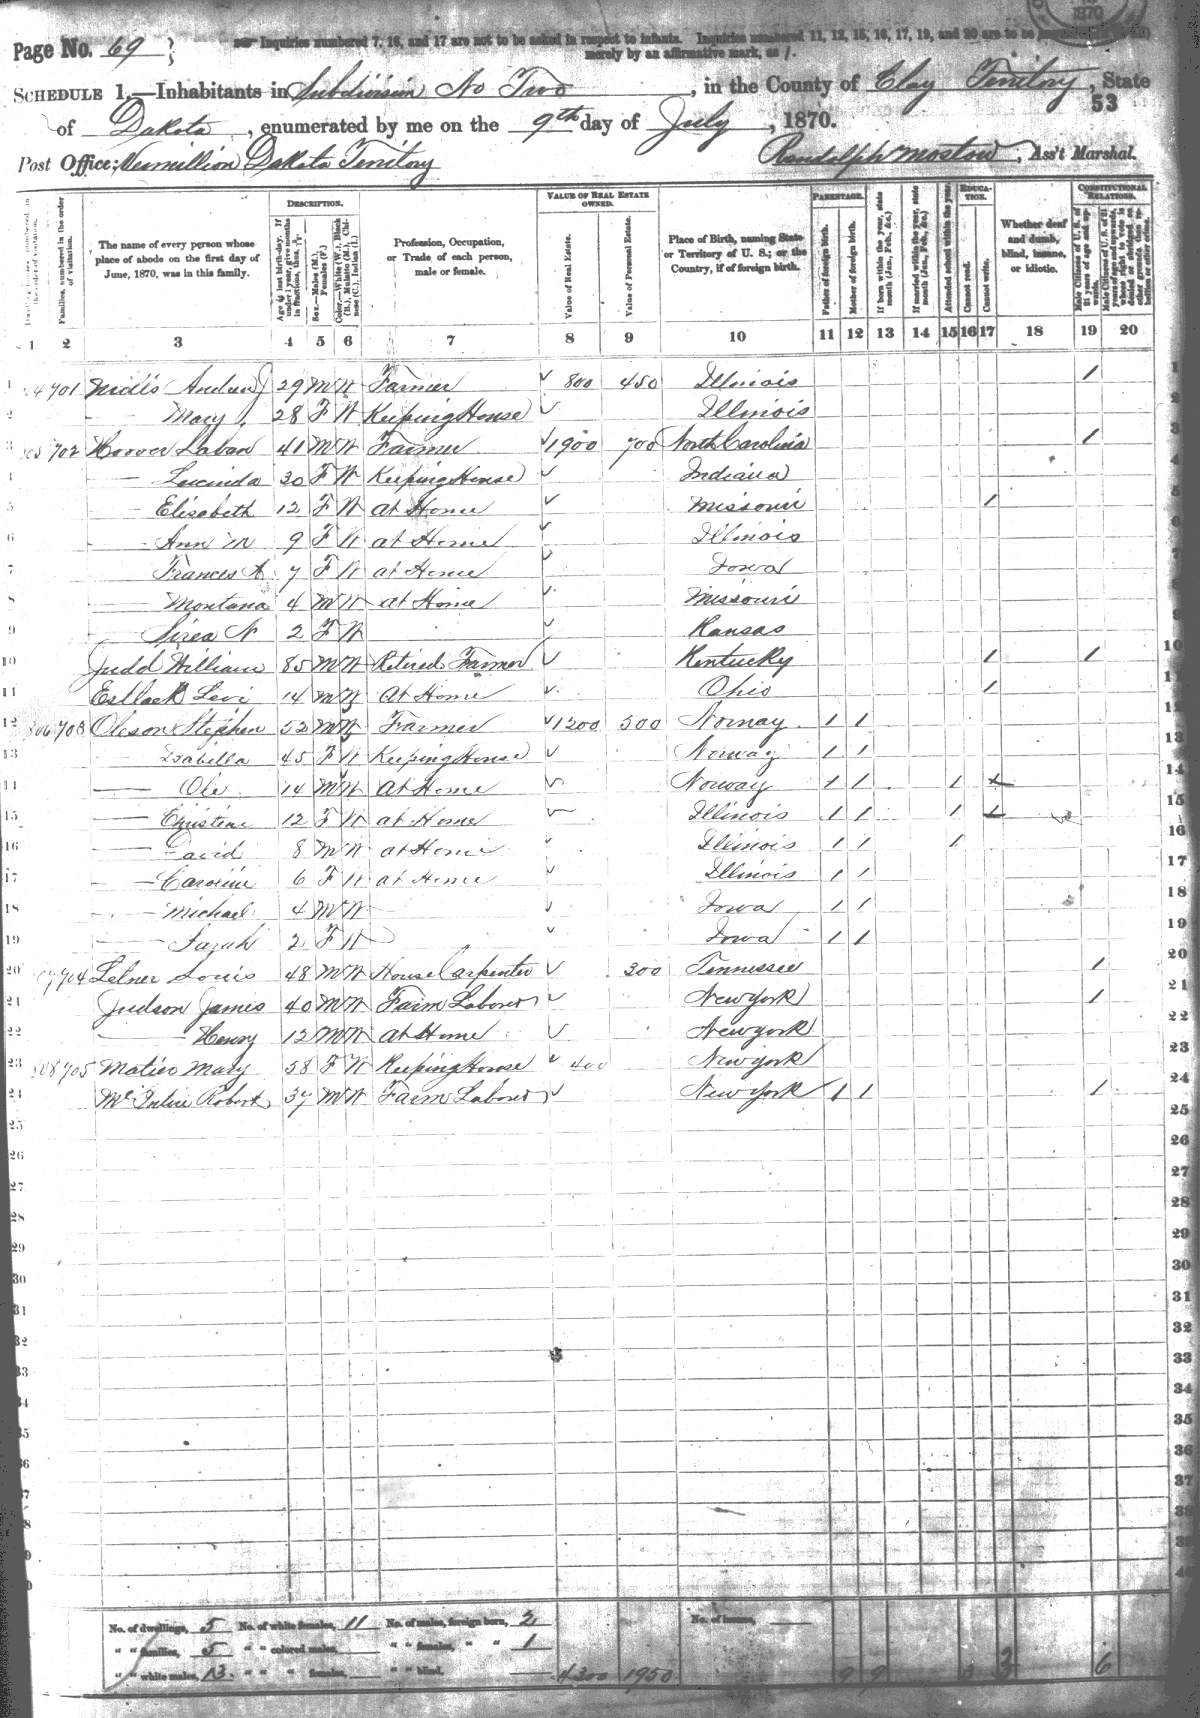 1870
Page No. 69
Inquiries numbered 7, 16, and 17 are not to be asked in respect to infants. Inquiries numbered 11, 12, 15, 16, 17, 19, and 20 are to be
merely by an affirmative mark, as /.
SCHEDULE 1.—Inhabitants in Subdivision No Two, in the County of Clay Territory, State
53
of Dakota, enumerated by me on the 9th day of July, 1870.
Post Office: Vermillion Dakota Territory
Randolph Mostow, Ass't Marshal.
DESCRIPTION. VALUE OF REAL ESTATE OWNED. PARENTAGE. EDUCATION. CONSTITUTIONAL RELATIONS.
Families, numbered in the order of visitation.
The name of every person whose place of abode on the first day of June, 1870, was in this family.
Age at last birth-day. If under 1 year, give months in fractions, thus,
Sex.—Males (M.), Females (F.)
Color.—White (W.), Black (B.), Mulatto (M.), Chinese (C.), Indian (I.)
Profession, Occupation, or Trade of each person, male or female.
Value of Real Estate.
Value of Personal Estate.
Place of Birth, naming State or Territory of U. S.; or the Country, if of foreign birth.
Father of foreign birth.
Mother of foreign birth.
If born within the year, state month (Jan., Feb., &c.)
If married within the year, state month (Jan., Feb., &c.)
Attended school within the year.
Cannot read.
Cannot write.
Whether deaf and dumb, blind, insane, or idiotic.
Male Citizens of U. S. of 21 years of age and upwards.
1 2 3 4 5 6 7 8 9 10 11 12 13 14 15 16 17 18 19 20
1 701 Andrew J 29 M W Farmer 800 450 Illinois / 1
2 Mary 28 F W Keeping House Illinois 2
3 702 Hoover Laban 41 M W Farmer 1900 700 North Carolina / 3
4 Lucinda 30 F W Keeping House Indiana 4
5 Elisabeth 12 F W at Home Missouri / 5
6 Ann M 9 F W at Home Illinois 6
7 Frances A 7 F W at Home Iowa 7
8 Montana 4 M W at Home Missouri 8
9 N 2 F W Kansas 9
10 Judd William 85 M W Retired Farmer Kentucky / / 10
11 Levi 14 M W At Home Ohio / 11
12 806 703 Oleson Stephen 52 M W Farmer 1200 500 Norway / / 12
13 Isabella 45 F W Keeping House Norway / / 13
14 Ole 14 M W At Home Norway / / / 14
15 Christene 12 F W at Home Illinois / / / 15
16 David 8 M W at Home Illinois / / / 16
17 Caroline 6 F W at Home Illinois / / 17
18 Michael 4 M W Iowa / / 18
19 Sarah 2 F W Iowa / / 19
20 704 Louis 48 M W House Carpenter 300 Tennessee / 20
21 Judson James 40 M W Farm Laborer New York / 21
22 Henry 12 M W At Home New York 22
23 808 705 Mary 58 F W Keeping House 400 New York 23
24 McIntire Robert 37 M W Farm Laborer New York / / / 24
25 25
26 26
27 27
28 28
29 29
30 30
31 31
32 32
33 33
34
35
36
37
38
39
40
No. of dwellings, 5 No. of white females, 11 No. of males, foreign born, 2 No. of insane,
" " families, 5 " " colored males, " " females, " " 1
" " white males, 13 " " " females, " " blind, 4300 1950 9 9 3 6